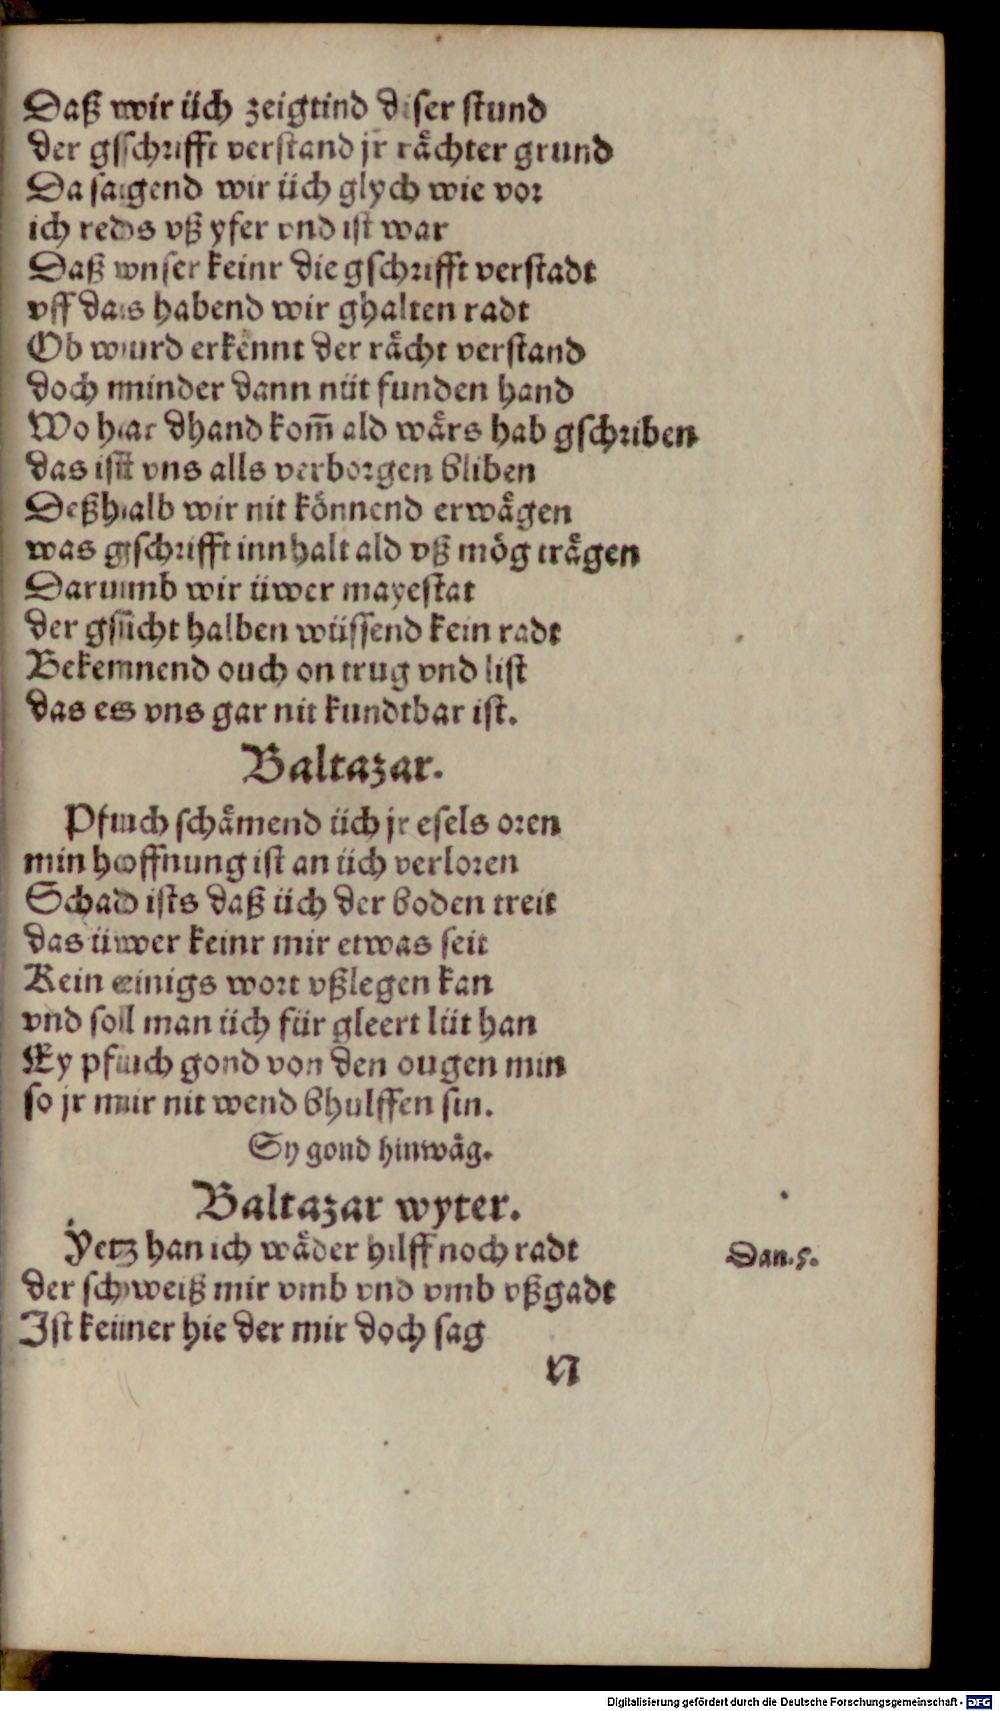 Daß wir üch zeigtind diser stund
der gschrifft verstand jr rächter grund
Da sagend wir üch glych wie vor
ich reds vß yfer vnd ist war
Daß vnser keinr die gschrifft verstadt
vff das habend wir ghalten radt
Ob wurd erkennt der rächt verstand
doch minder dann nüt funden hand
Wo har dhand kom̄ ald wärs hab gschriben
das ist vns alls verborgen bliben
Deßhalb wir nit könnend erwägen
was gschrifft innhalt ald vß mög trägen
Darumb wir üwer mayestat
der gsicht halben wüssend kein radt
Bekennend ouch on trug vnd list
das es vns gar nit kundtbar ist.
Baltazar.
Pfuch schämend üch jr esels oren
min hoffnung ist an üch verloren
Schad ists daß üch der boden treit
das üwer keinr mir etwas seit
Kein einigs wort vßlegen kan
vnd soll man üch für gleert lüt han
Ey pfuch gond von den ougen min
so jr mir nit wend bhulffen sin.
Sy gond hinwäg.
Baltazar wyter.
Yetz han ich wäder hilff noch radt Dan.5.
der schweiß mir vmb vnd vmb vßgadt
Ist keiner hie der mir doch sag
N
Digitalisierung gefördert durch die Deutsche Forschungsgemeinschaft - DFG